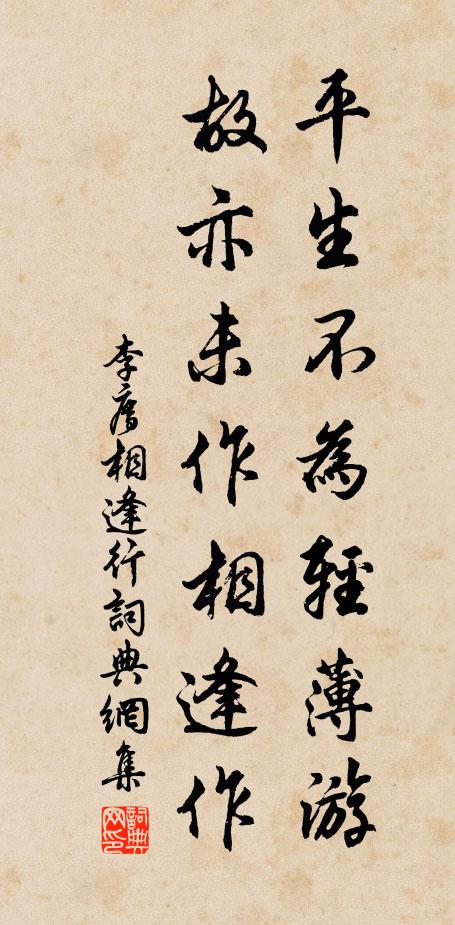 平生不為輕薄游
故亦未作相逢作
李廌相逢行詞典網集
詞典网印